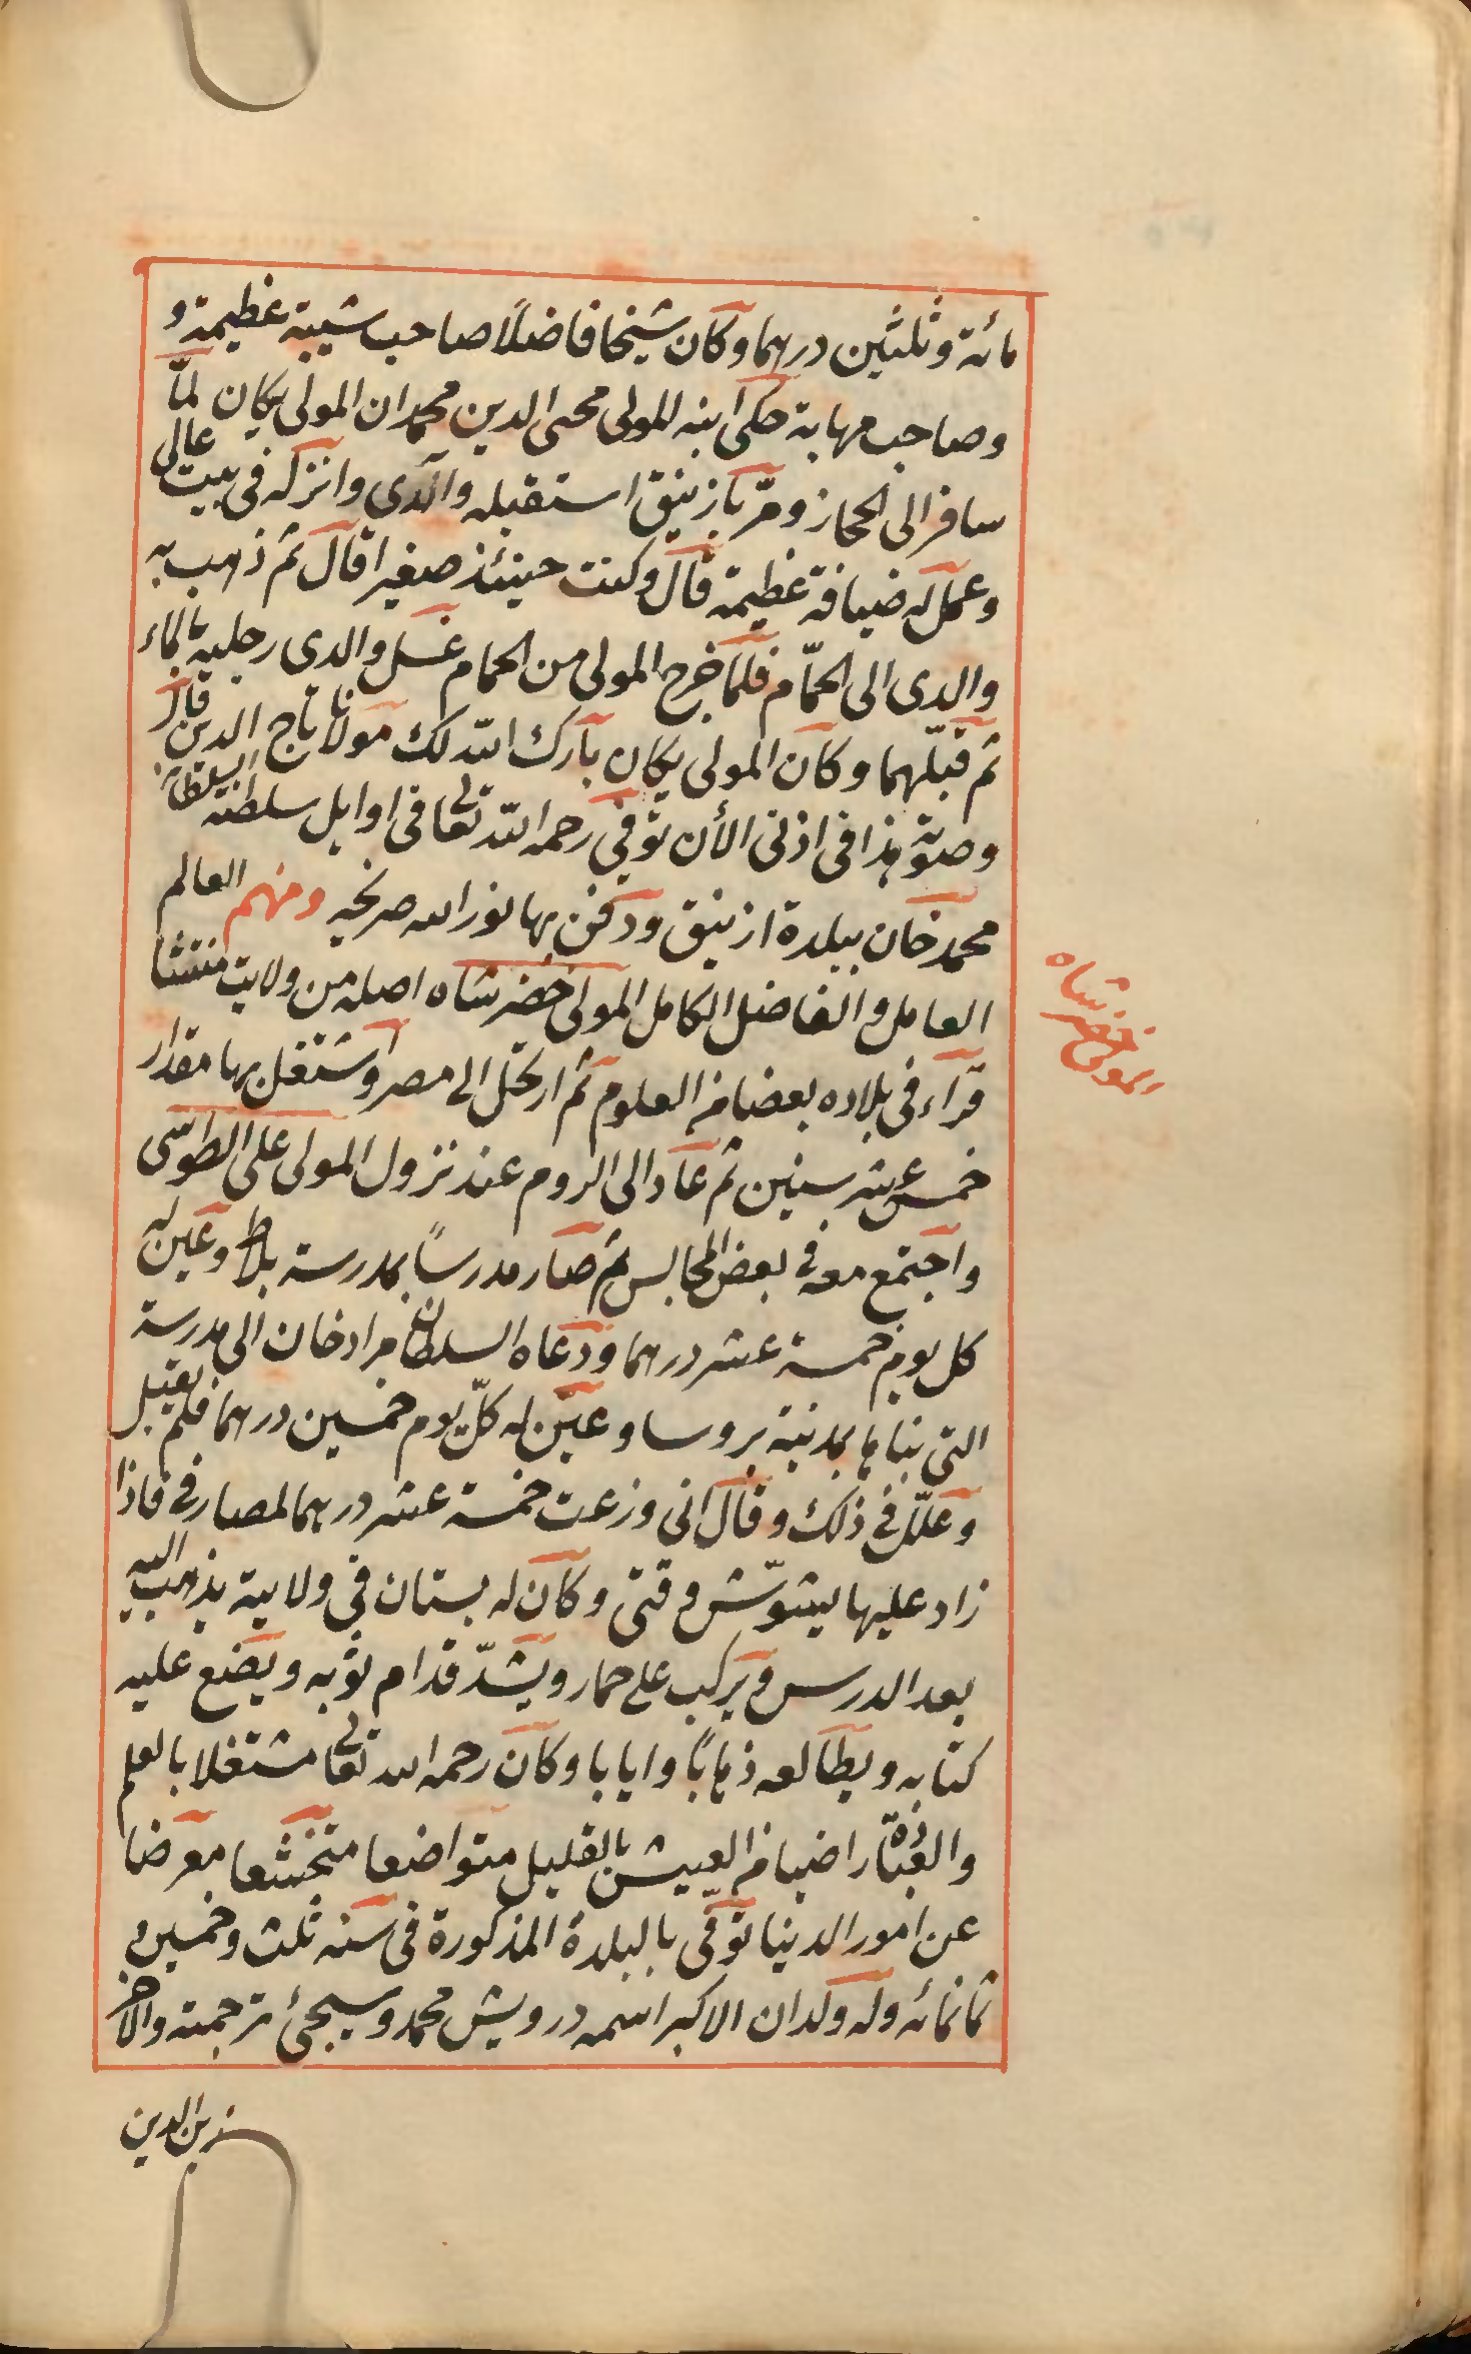 مائة وثلثين درهما وكان شيخا فاضلاً صاحب شيبة عظيمة و
وصاحب مهابة حكى ابنه للمولى محيى الدين محمد ان المولى يكان لمّا
سافر الى الحجاز ومرّ بازنيق استقبله والدى وانزله فى بيت عالى
وعمل له ضيافة عظيمة قال وكنت حينئذ صغيرا قال ثم ذهب به
والدى الى الحمّام فلمّا خرج المولى من الحمام غسل والدى رجليه بالماء
ثم قبّلهما وكان المولى يكان بارك الله لك مولانا تاج الدين قال
وصوته هذا فى اذنى الأن توفى رحمه الله تعالى فى اوايل سلطنة السلطان
محمد خان ببلدة ازنيق ودفن بها نور الله ضريحه ومنهم العالم
العامل والفاضل الكامل المولى خضر شاه اصله من ولايت منتشا
قراء فى بلاده بعضا من العلوم ثم ارتحل الى مصر واشتغل بها مقدار
خمس عشر سنين ثم عاد الى الروم عند نزول المولى على الطوسى
واجتمع معه فى بعض المجالس ثم صار مدرساً بمدرسة بلاط وعين له
كل يوم خمسة عشر درهما ودعاه السلطان مراد خان الى مدرسة
التى بناها بمدينة بروسا وعيّن له كلّ يوم خمسين درهما فلم يقبل
وعلّل فى ذلك وقال انى وزعت خمسة عشر درهما لمصارفى فاذا
زاد عليها يشوّش وقتى وكان له بستان فى ولاية يذهب اليه
بعد الدرس ويركب على حمار ويشدّ قدام ثوبه ويضع عليه
كتابه ويطالعه ذهاباً وايابا وكان رحمه الله تعالى مشتغلا بالعلم
والعبادة راضيا من العيش بالقليل متواضعا متخشعا معرضا
عن امور الدينا توفّى بالبلدة المذكورة فى سنه ثلث وخمسين و
ثمانمائه وله ولدان الاكبر اسمه درويش محمد وسيجئ ترجمته والاخر
زين الدين
المولى خضر شاه